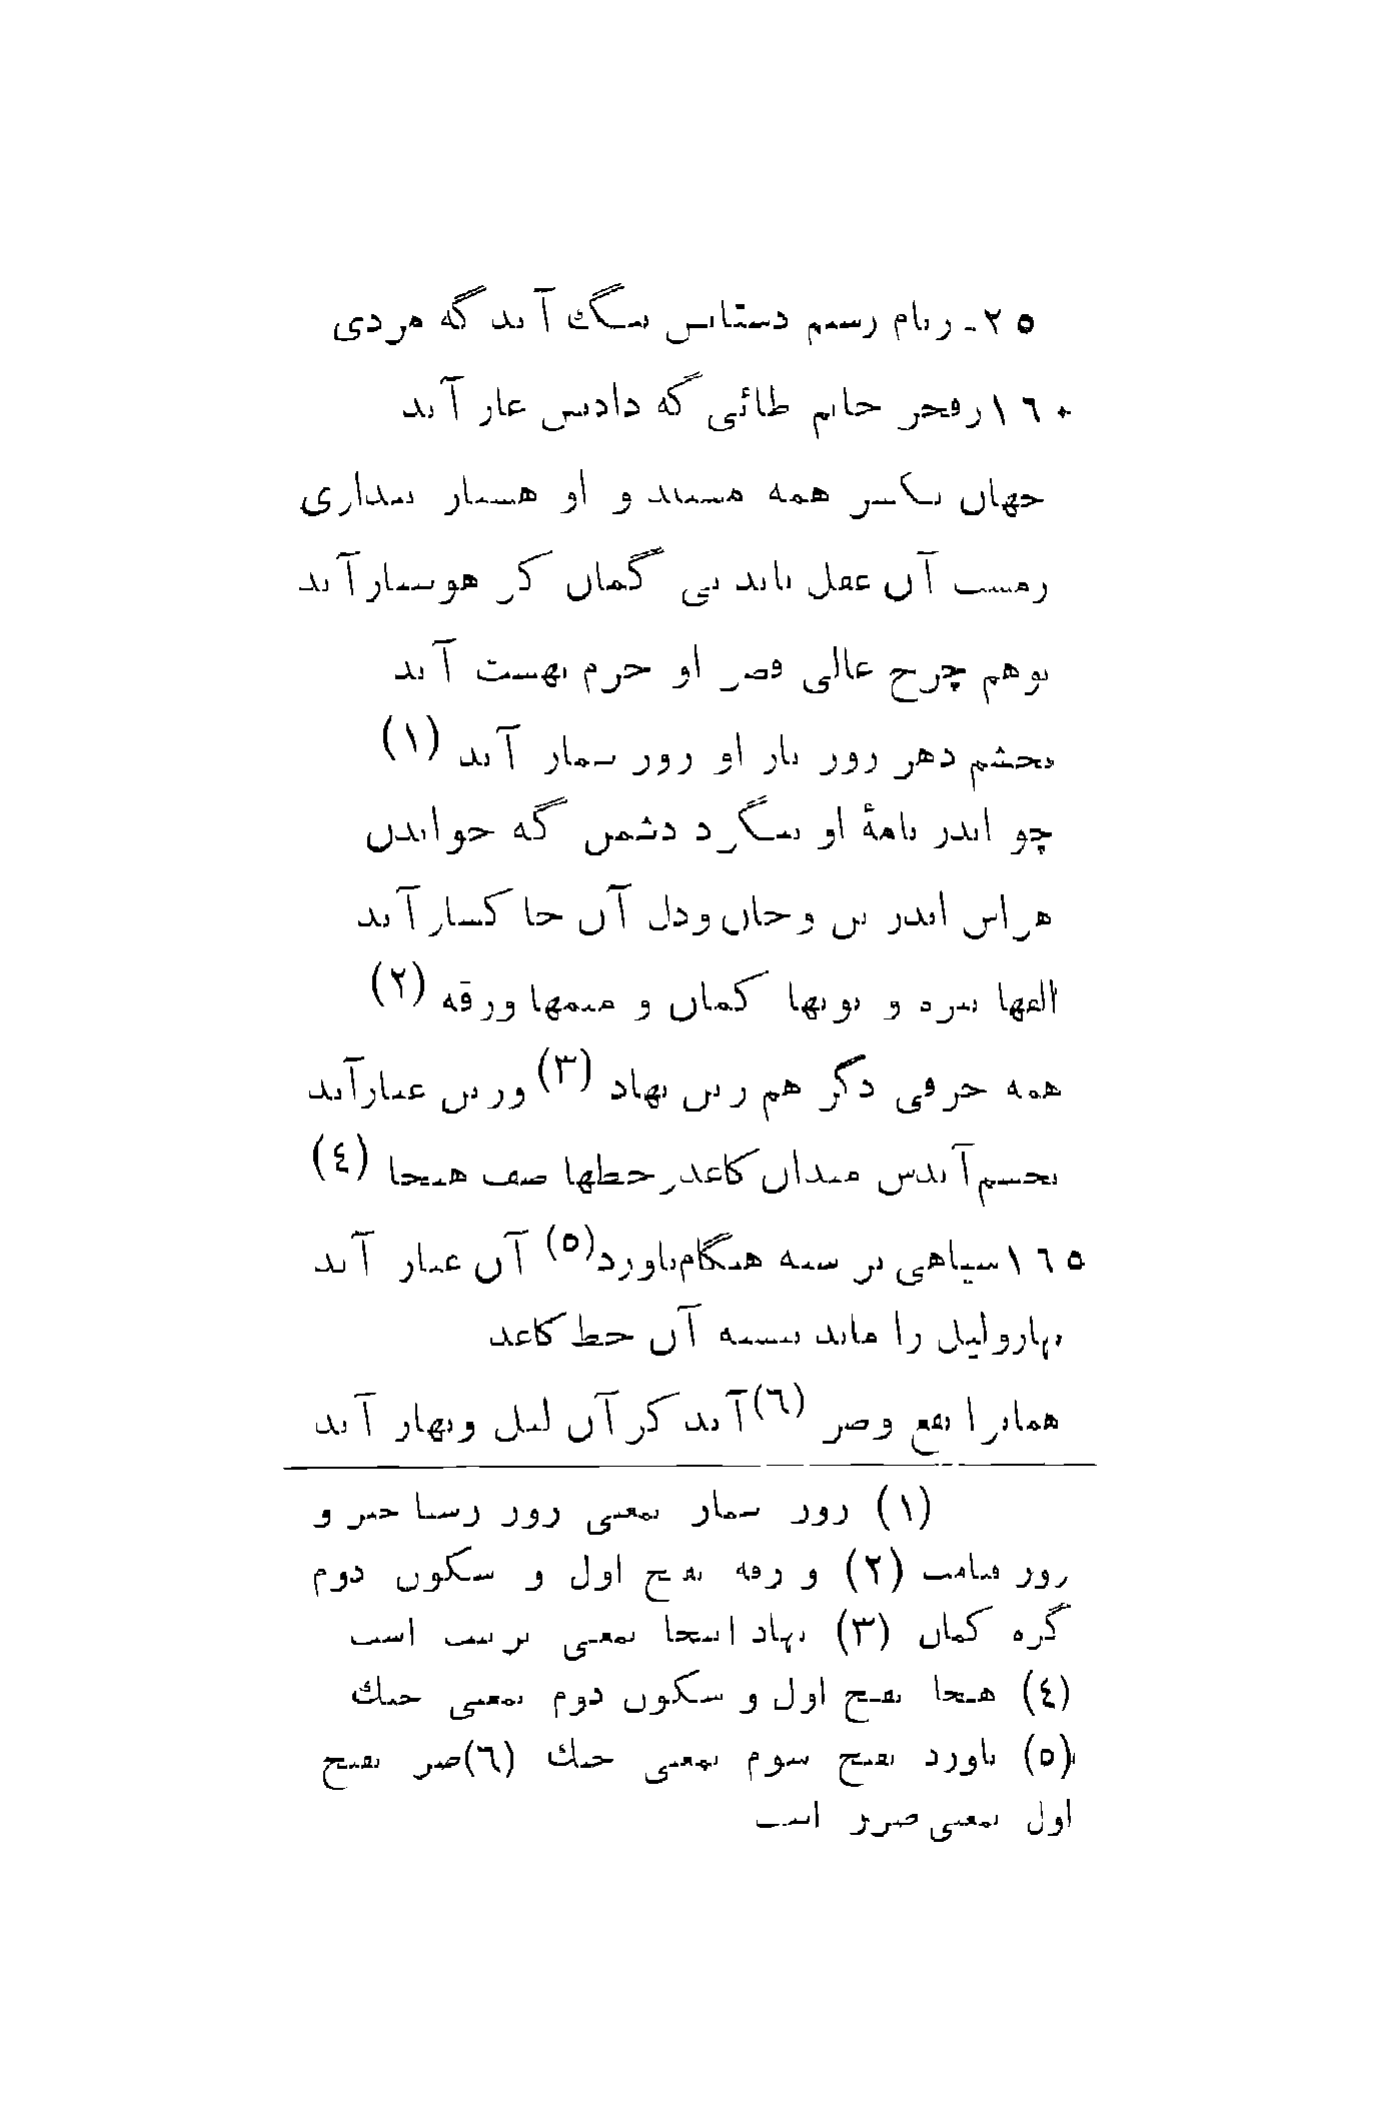 ۲۵ـ زنام رستم دستانش ننگ آید گه مردی
۱۶۰ زفخر حاتم طائی گه دادنش عار آید
جهان یکسر همه مستند و او هشیار پنداری
زمست آن عقل ناید بی گمان کز هوشیار آید
بوهم چرخ عالی قصر او خرم بهشت آید
بچشم دهر روز بار او روز شمار آید (۱)
چو اندر نامهٔ او بنگرد دشمن گه خواندن
هراس اندر تن و جان و دل آن خاکسار آید
الفها نیزه و نونها کمان و میمها ورقه (۲)
همه حرفی دگر هم زین نهاد (۳) وزین عیار آید
بچشم آیدش میدان کاغذ رخطها صف هیجا (۴)
۱۶۵ سیاهی بر سپه هنگام ناورد (۵) آن غبار آید
نهار و لیل را ماند بسیه آن خط کاغذ
همانرا نفع و ضر (۶) آید کز آن لیل و نهار آید
(۱) روز شمار بمعنی روز رستاخیز و
روز قیامت (۲) ورقه بفتح اول و سکون دوم
گره کمان (۳) نهاد اینجا بمعنی ترتیب است
(۴) هیجا بفتح اول و سکون دوم بمعنی جنگ
(۵) ناورد بفتح سوم بمعنی جنگ (۶) ضر بفتح
اول بمعنی ضرر است